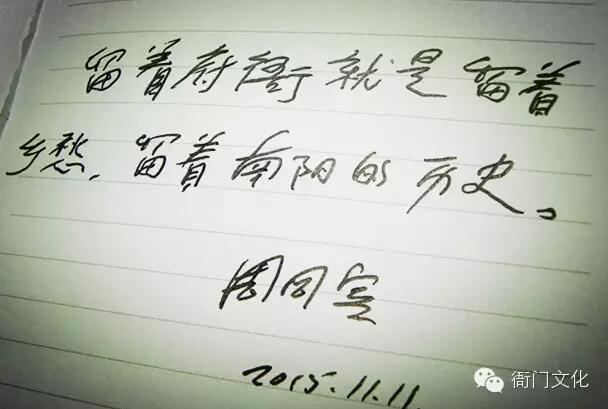 留着府衙就是留着
乡愁，留着南阳的历史。
周同宾
2015.11.11.
衙门文化